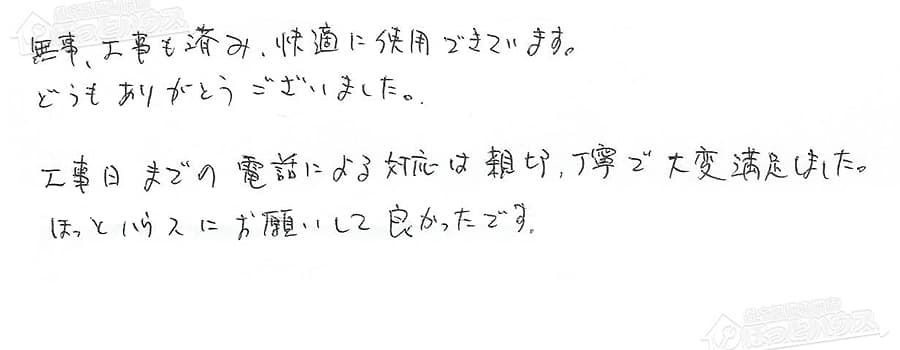 無事、工事も済み、快適に使用できています。
どうもありがとうございました。
工事日までの電話による対応は親切、丁寧で大変満足しました。
ほっとハウスにお願いして良かったです。
ほっとハウス
ほっとハウス